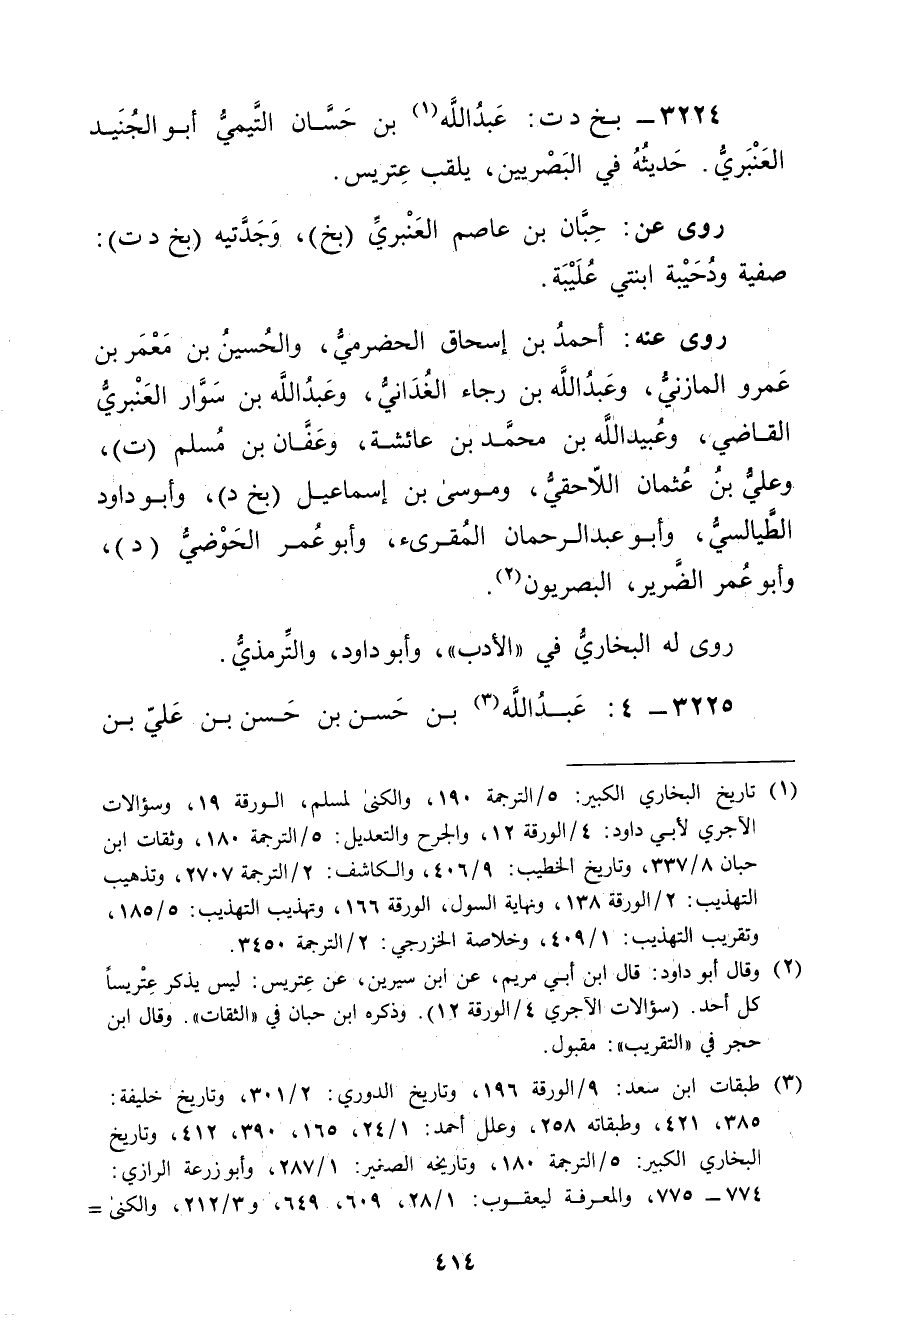 ٣٢٢٤ – بخ د ت: عَبدُاللَّه(١) بن حَسَّان التَّيميُّ أبو الجُنَيد
العَنْبَريُّ. حَديثُهُ في البَصْريين، يلقب عِتريس.
روى عن: حِبَّان بن عاصم العَنْبريِّ (بخ)، وَجَدَّتيه (بخ د ت):
صفية ودُحَيْبة ابنتي عُلَيْبَة.
روى عنه: أحمدُ بن إسحاق الحضرميُّ، والحُسينُ بن مَعْمَر بن
عَمرو المازنيُّ، وعَبدُاللَّه بن رجاء الغُدَانيُّ، وعَبدُاللَّه بن سَوَّار العَنْبريُّ
القاضي، وعُبيداللَّه بن محمَّد بن عائشة، وعَفَّان بن مُسلم (ت)،
وعليُّ بنُ عُثمان اللّاحقيُّ، وموسىٰ بن إسماعيل (بخ د)، وأبو داود
الطَّيالسيُّ، وأبو عبدالرحمان المُقرىء، وأبو عُمر الحَوْضيُّ (د)،
وأبو عُمر الضَّرير، البصريون(٢).
روى له البخاريُّ في «الأدب»، وأبو داود، والتِّرمذيُّ.
٣٢٢٥ – ٤: عَبدُاللَّه(٣) بن حَسن بن حَسن بن عَليّ بن
(١) تاريخ البخاري الكبير: ٥/الترجمة ١٩٠، والكنىٰ لمسلم، الورقة ١٩، وسؤالات
الآجري لأبي داود: ٤/الورقة ١٢، والجرح والتعديل: ٥/الترجمة ١٨٠، وثقات ابن
حبان ٣٣٧/٨، وتاريخ الخطيب: ٤٠٦/٩، والكاشف: ٢/الترجمة ٢٧٠٧، وتذهيب
التهذيب: ٢/الورقة ١٣٨، ونهاية السول، الورقة ١٦٦، وتهذيب التهذيب: ١٨٥/٥،
وتقريب التهذيب: ٤٠٩/١، وخلاصة الخزرجي: ٢/الترجمة ٣٤٥٠.
(٢) وقال أبو داود: قال ابن أبي مريم، عن ابن سيرين، عن عِتريس: ليس يذكر عِتْريساً
كل أحد. (سؤالات الآجري ٤/الورقة ١٢). وذكره ابن حبان في «الثقات». وقال ابن
حجر في «التقريب»: مقبول.
(٣) طبقات ابن سعد: ٩/الورقة ١٩٦، وتاريخ الدوري: ٣٠١/٢، وتاريخ خليفة:
٣٨٥، ٤٢١، وطبقاته ٢٥٨، وعلل أحمد: ٢٤/١، ١٦٥، ٣٩٠، ٤١٢، وتاريخ
البخاري الكبير: ٥/الترجمة ١٨٠، وتاريخه الصغير: ٢٨٧/١، وأبو زرعة الرازي:
٧٧٤ – ٧٧٥، والمعرفة ليعقوب: ٢٨/١، ٦٠٩، ٦٤٩، و٢١٢/٣، والكنىٰ =
٤١٤